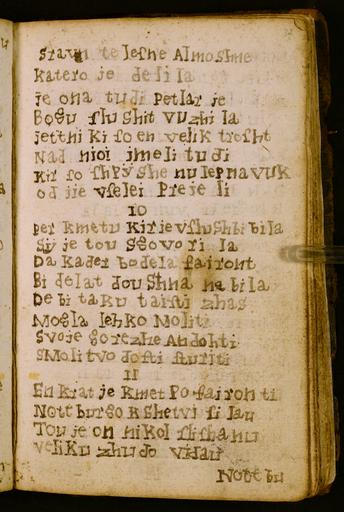 Stavn te leshe Almoshne
katero je deli la
je ona tudi petlar je
Bogu slushit vuzhi la
jetthi ki so en velik trosht
Nad nioi jmeli tudi
kir so shpyshe nu lepnavuk
od jie vselei preje li
10
per kmetu kir je vslushbi bila
Si je tou sgovori la
Da kader bo dela fairoht
Bi delat dou shna na bila
De bi taku taisti zhas
Mogla lehko Moliti
Svoje gorezhe Andohti
smolitvo dosti sturiti
11
En krat je kmet Po fairoh ti
Nottburgo k shetvi si lau
Tou je on nikol slisha nu
veliku zhudo vidau
Nottbu